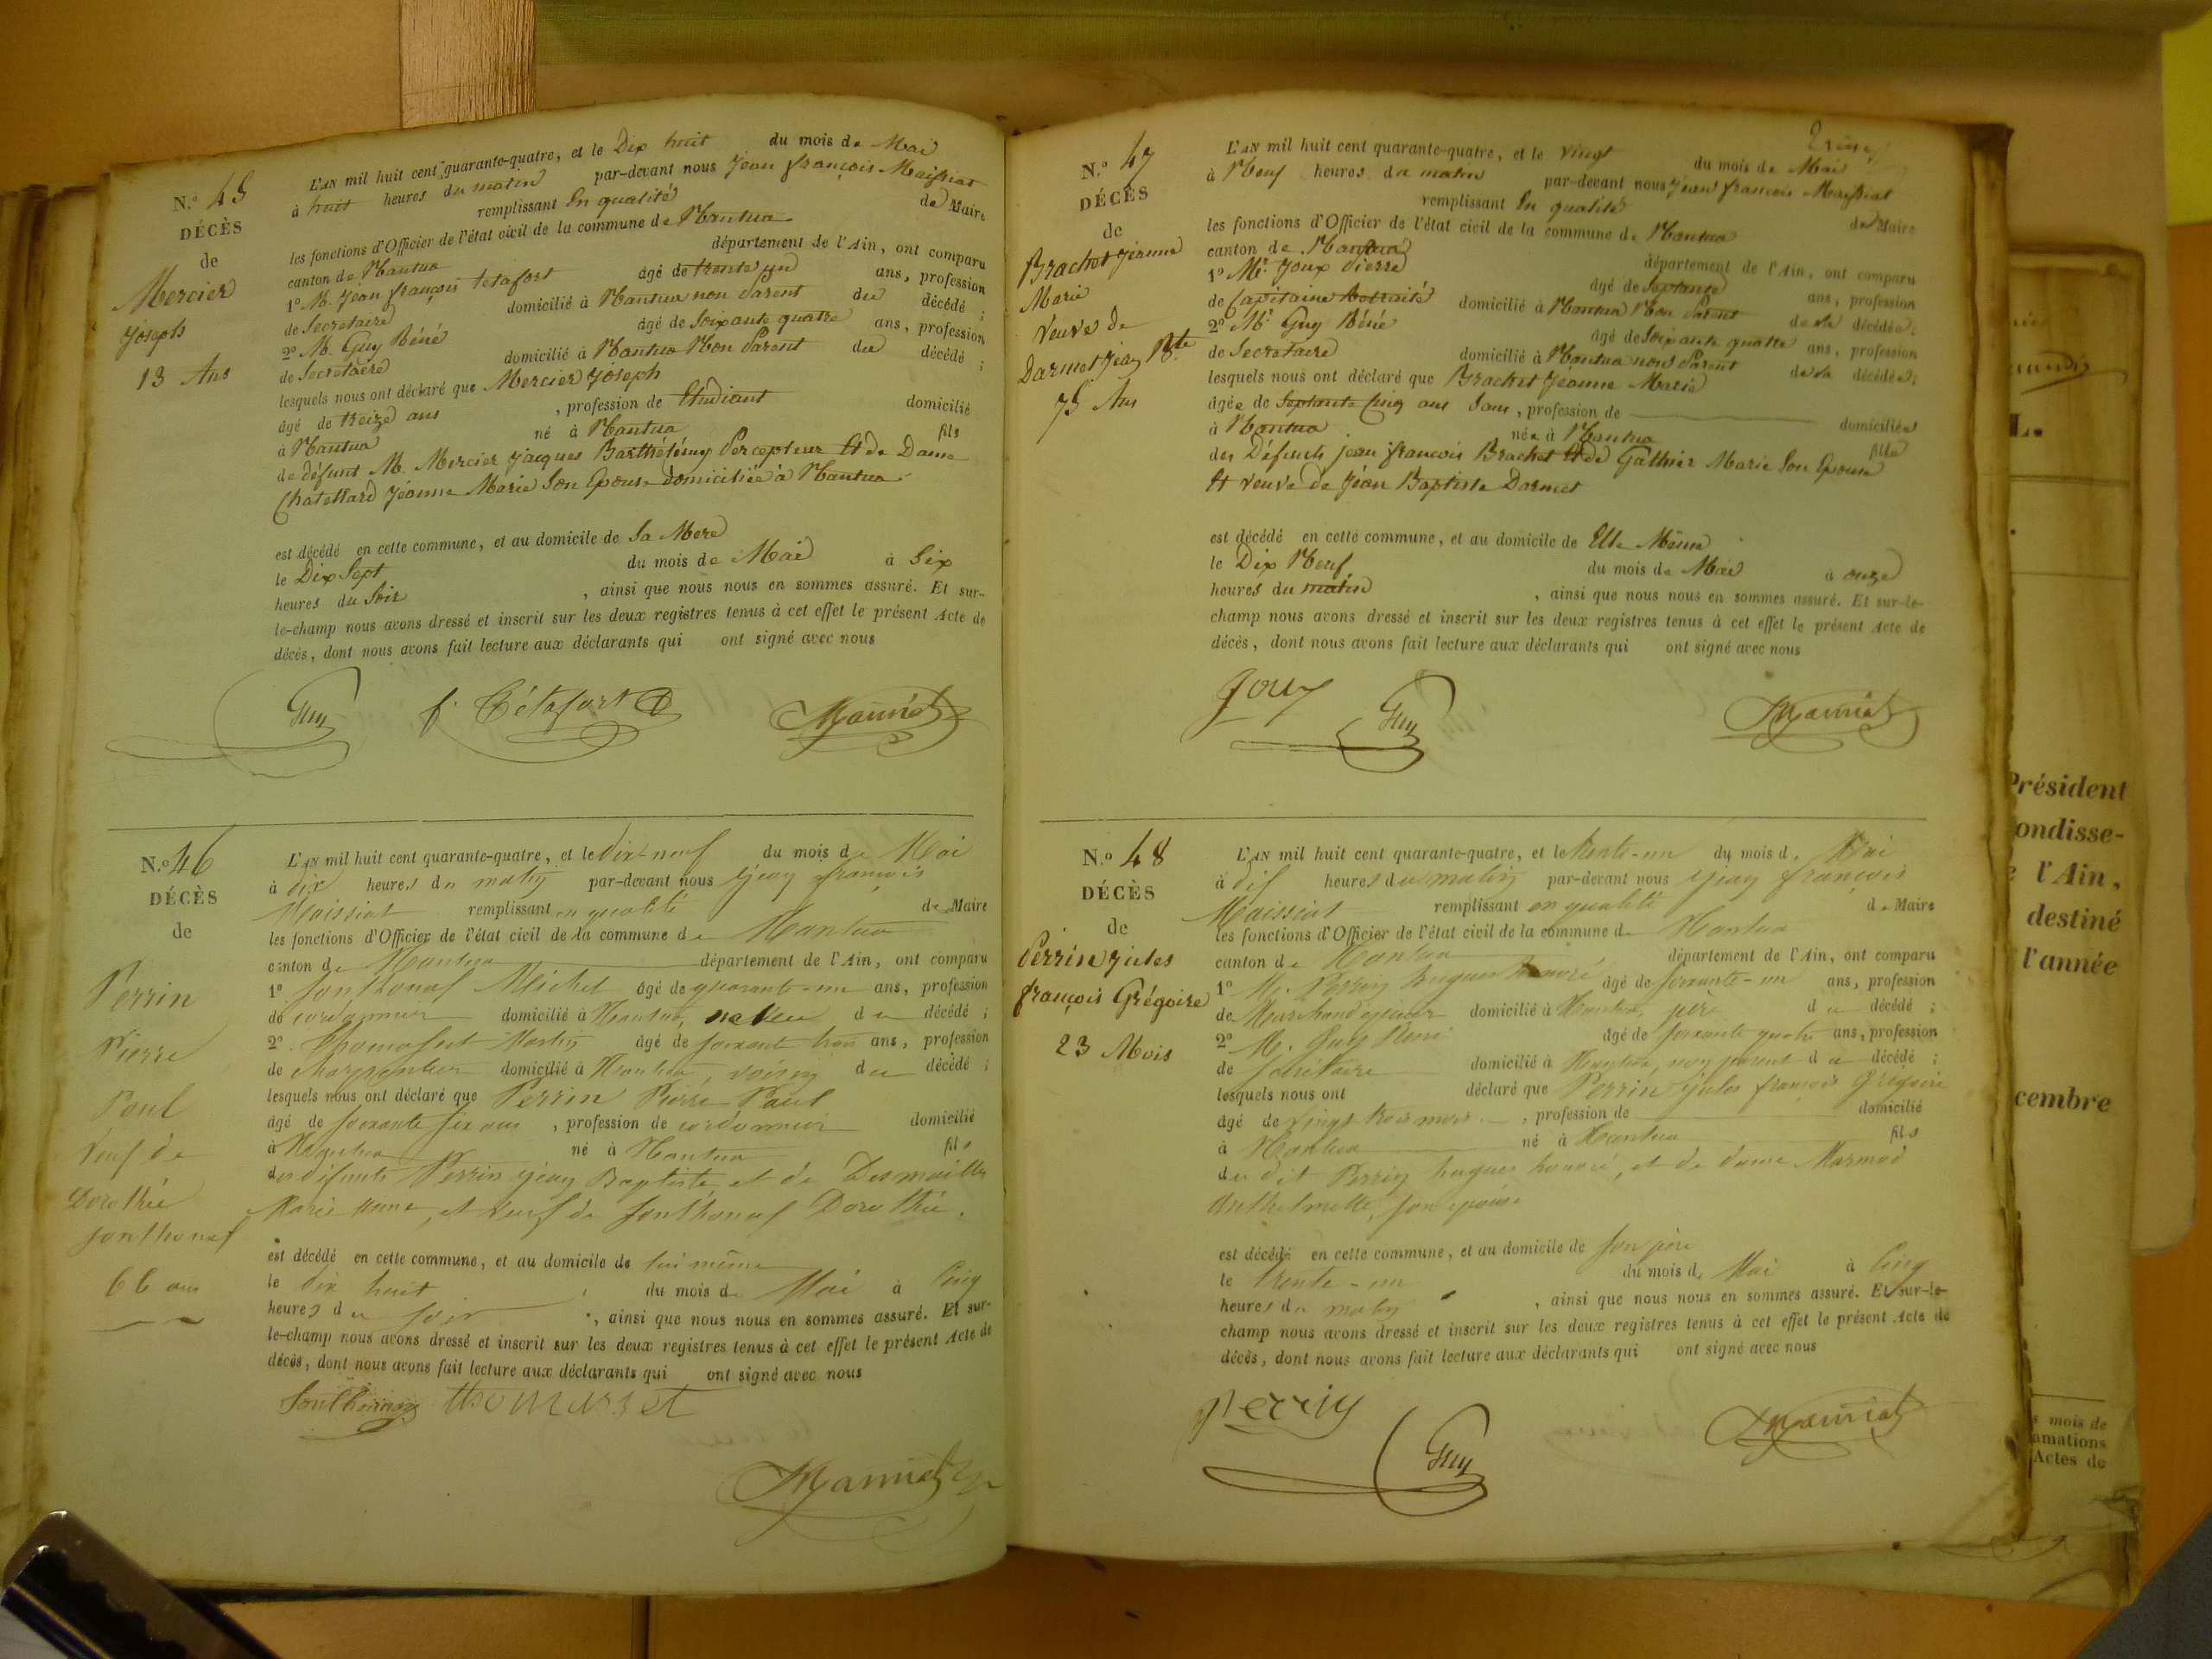 N.º 45
DÉCÈS
de
Mercier
Joseph
13 Ans
L'AN mil huit cent quarante-quatre, et le Dix huit du mois de Mai
à huit heures du matin par-devant nous Jean françois Maissiat
remplissant En qualité de Maire
les fonctions d'Officier de l'état civil de la commune de Nantua
canton de Nantua département de l'Ain, ont comparu
1º M. Jean françois tetafort âgé de trente un ans, profession
de Secretaire domicilié à Nantua non Parent du décédé ;
2º M. Guy Réné âgé de Soixante quatre ans, profession
de Secretaire domicilié à Nantua Non Parent du décédé ;
lesquels nous ont déclaré que Mercier Joseph
âgé de treize ans , profession de Etudiant domicilié
à Nantua né à Nantua fils
de défunt M. Mercier Jacques Barthélémy Percepteur Et de Dame
Chatellard Jéanne Marie Son Epouse domiciliée à Nantua
est décédé en cette commune, et au domicile de Sa Mere
le Dix Sept du mois de Mai à Six
heures du Soir , ainsi que nous nous en sommes assuré. Et sur-
le-champ nous avons dressé et inscrit sur les deux registres tenus à cet effet le présent Acte de
décès, dont nous avons fait lecture aux déclarants qui ont signé avec nous
Guy f. Tétafort Maissiat
N.º 46
DÉCÈS
de
Perrin
Pierre
Paul
Veuf de
Dorothée
Jonthonaf
66 ans
L'AN mil huit cent quarante-quatre, et le dix-neuf du mois de Mai
à dix heures du matin par-devant nous Jean françois
Maissiat remplissant en qualité de Maire
les fonctions d'Officier de l'état civil de la commune de Nantua
canton de Nantua département de l'Ain, ont comparu
1º Jonthonaf Michel âgé de quarante-un ans, profession
de cordonnier domicilié à Nantua, neveu du décédé ;
2º Thomasset Martin âgé de soixante trois ans, profession
de charpentier domicilié à Nantua, voisin du décédé ;
lesquels nous ont déclaré que Perrin Pierre Paul
âgé de soixante six ans , profession de cordonnier domicilié
à Nantua né à Nantua fils
des défunts Perrin Jean Baptiste et de
Marie Anne, et veuf de Jonthonaf Dorothée.
est décédé en cette commune, et au domicile de lui même
le dix huit du mois de Mai à Cinq
heures du soir , ainsi que nous nous en sommes assuré. Et sur-
le-champ nous avons dressé et inscrit sur les deux registres tenus à cet effet le présent Acte de
décès, dont nous avons fait lecture aux déclarants qui ont signé avec nous
thomasset
Maissiat
N.º 47
DÉCÈS
de
Brachet Jéanne
Marie
Veuve de
Darmet Jean Bte
75 Ans
L'AN mil huit cent quarante-quatre, et le vingt du mois de Mai
à Neuf heures du matin par-devant nous Jéan françois Maissiat
remplissant En qualité de Maire
les fonctions d'Officier de l'état civil de la commune de Nantua
canton de Nantua département de l'Ain, ont comparu
1º Mr. Joux Pierre âgé de Septante ans, profession
de Capitaine Retraité domicilié à Nantua Non Parent de la décédée ;
2º Mr. Guy Réné âgé de Soixante quatre ans, profession
de Secretaire domicilié à Nantua non Parent de la décédée ;
lesquels nous ont déclaré que Brachet Jéanne Marie
âgée de Septante Cinq ans Sans , profession de domiciliée
à Nantua née à Nantua fille
des Défunts jean françois Brachet Et de Gathier Marie Son Epouse
Et veuve de Jéan Baptiste Darmet
est décédé en cette commune, et au domicile de Elle Même
le Dix Neuf du mois de Mai à onze
heures du matin , ainsi que nous nous en sommes assuré. Et sur-le-
champ nous avons dressé et inscrit sur les deux registres tenus à cet effet le présent Acte de
décès, dont nous avons fait lecture aux déclarants qui ont signé avec nous
Joux Guy Maissiat
N.º 48
DÉCÈS
de
Perrin Jules
françois Grégoire
23 Mois
L'AN mil huit cent quarante-quatre, et le trente-un du mois d. Mai
à dix heures du matin par-devant nous Jean françois
Maissiat remplissant en qualité de Maire
les fonctions d'Officier de l'état civil de la commune de Nantua
canton de Nantua département de l'Ain, ont comparu
1º M. Perrin hugues honoré âgé de soixante-un ans, profession
de Marchand domicilié à Nantua, père du décédé ;
2º M. Guy Réné âgé de soixante quatre ans, profession
de secrétaire domicilié à Nantua, non parent du décédé ;
lesquels nous ont déclaré que Perrin Jules françois Grégoire
âgé de vingt trois mois , profession de domicilié
à Nantua né à Nantua fils
du dit Perrin hugues honoré, et de dame Marmod
Anthelmette, son épouse
est décédé en cette commune, et au domicile de son père
le trente-un du mois de Mai à Cinq
heures du matin , ainsi que nous nous en sommes assuré. Et sur-le-
champ nous avons dressé et inscrit sur les deux registres tenus à cet effet le présent Acte de
décès, dont nous avons fait lecture aux déclarants qui ont signé avec nous
Perrin Guy Maissiat
L.
Président
ondisse-
l'Ain,
destiné
l'année
cembre
mois de
amations
Actes de